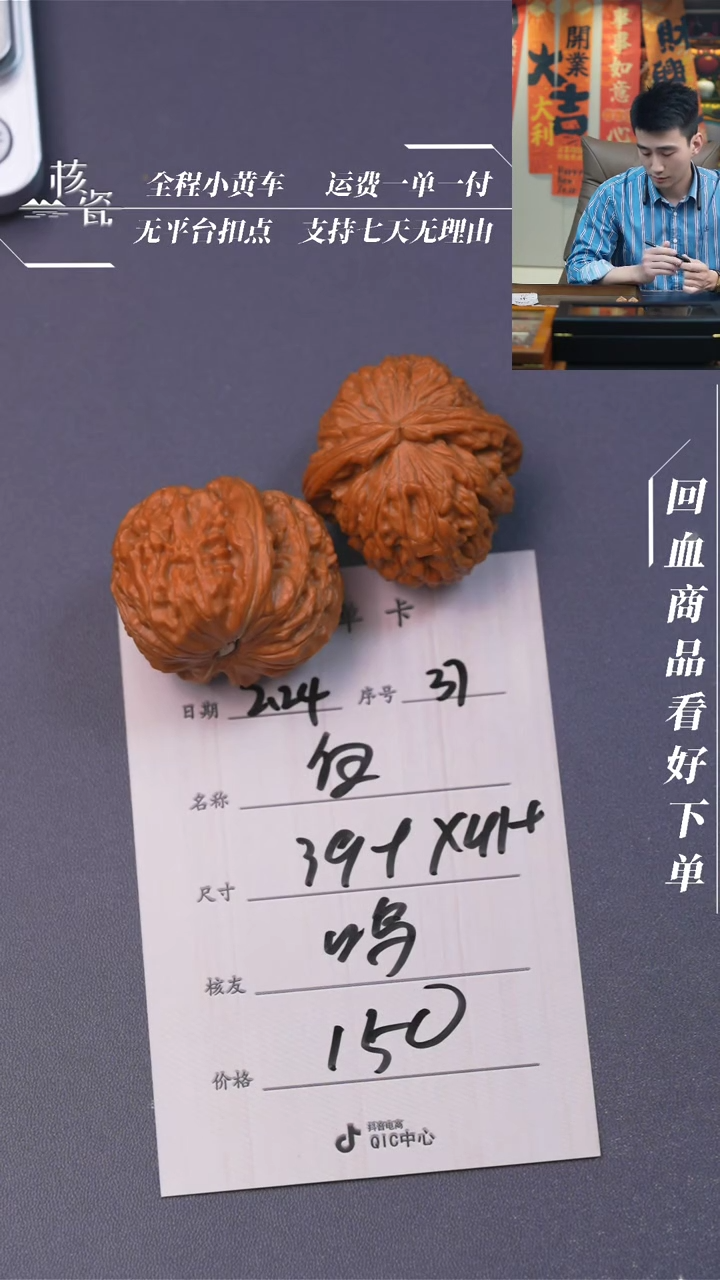 核瓷
全程小黄车 运费一单一付
无平台扣点 支持七天无理由
開業
大吉
大利
事事如意
心
财
回血商品看好下单
单卡
日期 2.24 序号 37
名称
尺寸 39+ X41+
核友 鸣
价格 150
抖音电商
QIC中心